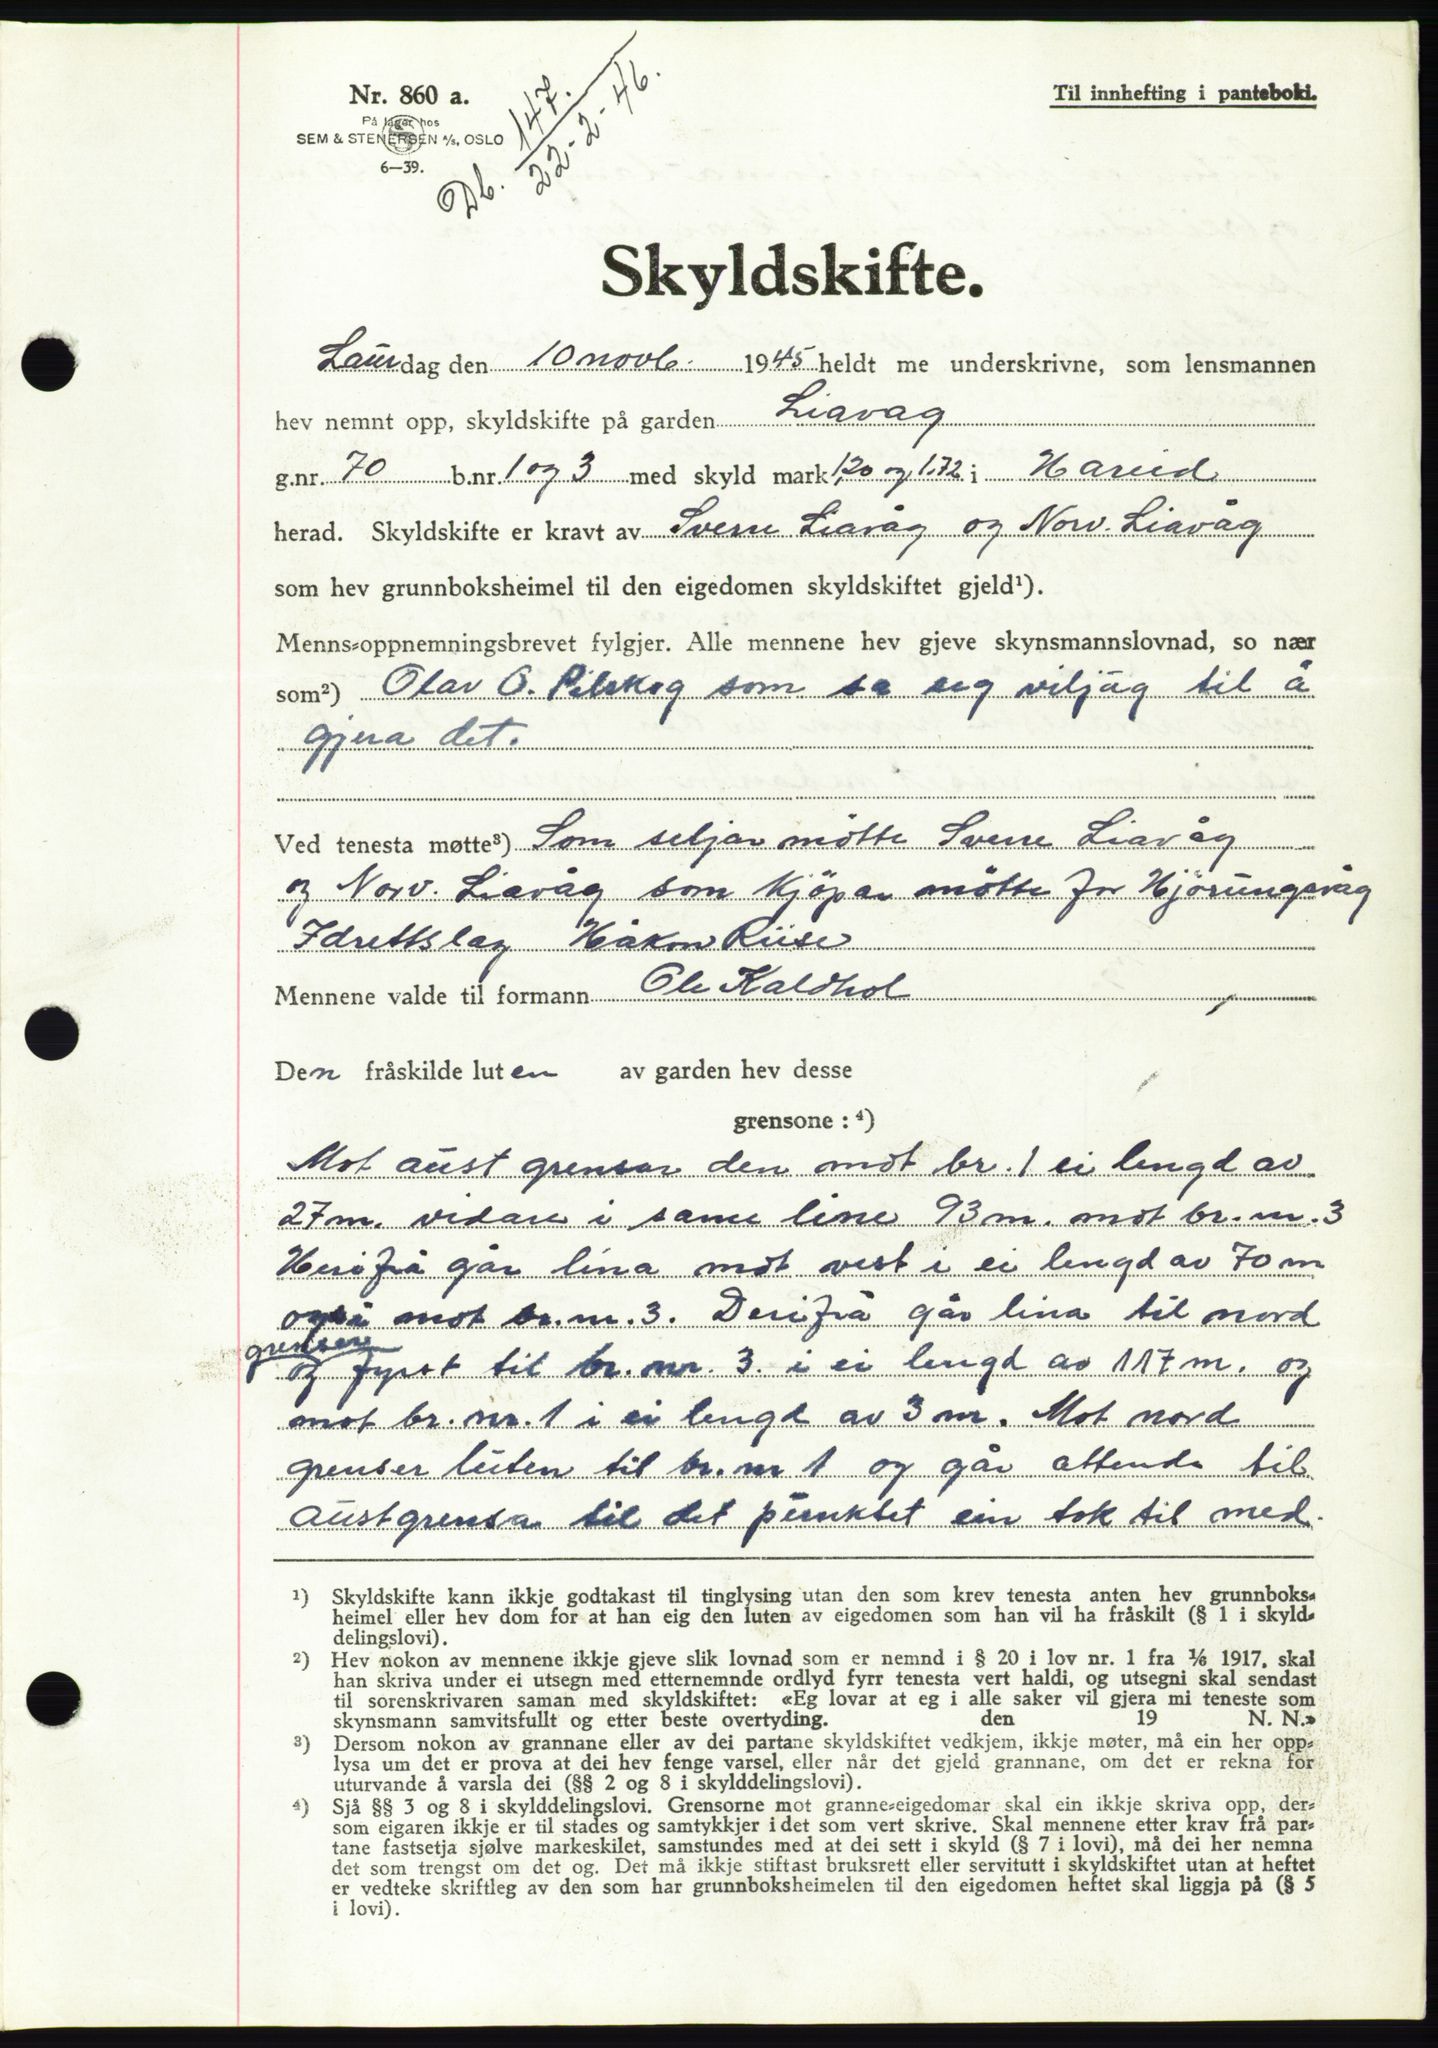 Nr. 860 a.
På lager hos
SEM & STENERSEN A/S, OSLO
6—39.
Db. 147.
22-2-46.
Til innhefting i panteboki.
Skyldskifte.
Laurdag den 10 novb. 1945 heldt me underskrivne, som lensmannen
hev nemnt opp, skyldskifte på garden Liavag
g.nr. 70 b.nr. 1 og 3 med skyld mark 1,20 og 1.72 i Hareid
herad. Skyldskifte er kravt av Sverre Liavåg og Norv. Liavåg
som hev grunnboksheimel til den eigedomen skyldskiftet gjeld¹).
Menns=oppnemningsbrevet fylgjer. Alle mennene hev gjeve skynsmannslovnad, so nær
som²) Olav O. Pilskog som sa seg viljug til å
gjera det.
Ved tenesta møtte³) Som seljar mötte Sverre Liavåg
og Norv. Liavåg som kjöpar mötte for Hjörungavåg
Idrettslag Håkon Riise
Mennene valde til formann Ole Kaldhol
Den fråskilde luten av garden hev desse
grensone : ⁴)
Mot aust grensar den mot br. 1 ei lengd av
27 m. vidare i same line 93 m. mot br. nr. 3
Herifrå går lina mot vest i ei lengd av 70 m
også mot br. nr. 3. Derifrå går lina til nord
grenser
og fyrst til br. nr. 3. i ei lengd av 117 m. og
mot br. nr. 1 i ei lengd av 3 m. Mot nord
grenser luten til br. nr 1 og går attende til
austgrensa til det punktet ein tok til med.
¹) Skyldskifte kann ikkje godtakast til tinglysing utan den som krev tenesta anten hev grunnboks=
heimel eller hev dom for at han eig den luten av eigedomen som han vil ha fråskilt (§ 1 i skyld=
delingslovi).
²) Hev nokon av mennene ikkje gjeve slik lovnad som er nemnd i § 20 i lov nr. 1 fra 1/6 1917, skal
han skriva under ei utsegn med etternemnde ordlyd fyrr tenesta vert haldi, og utsegni skal sendast
til sorenskrivaren saman med skyldskiftet: «Eg lovar at eg i alle saker vil gjera mi teneste som
skynsmann samvitsfullt og etter beste overtyding. den 19 N. N.»
³) Dersom nokon av grannane eller av dei partane skyldskiftet vedkjem, ikkje møter, må ein her opp=
lysa um det er prova at dei hev fenge varsel, eller når det gjeld grannane, om det er rekna for
uturvande å varsla dei (§§ 2 og 8 i skylddelingslovi).
⁴) Sjå §§ 3 og 8 i skylddelingslovi. Grensorne mot granne=eigedomar skal ein ikkje skriva opp, der=
som eigaren ikkje er til stades og samtykkjer i det som vert skrive. Skal mennene etter krav frå par=
tane fastsetja sjølve markeskilet, samstundes med at dei sett i skyld (§ 7 i lovi), må dei her nemna
det som trengst om det og. Det må ikkje stiftast bruksrett eller servitutt i skyldskiftet utan at heftet
er vedteke skriftleg av den som har grunnboksheimelen til den eigedomen heftet skal liggja på (§ 5
i lovi).